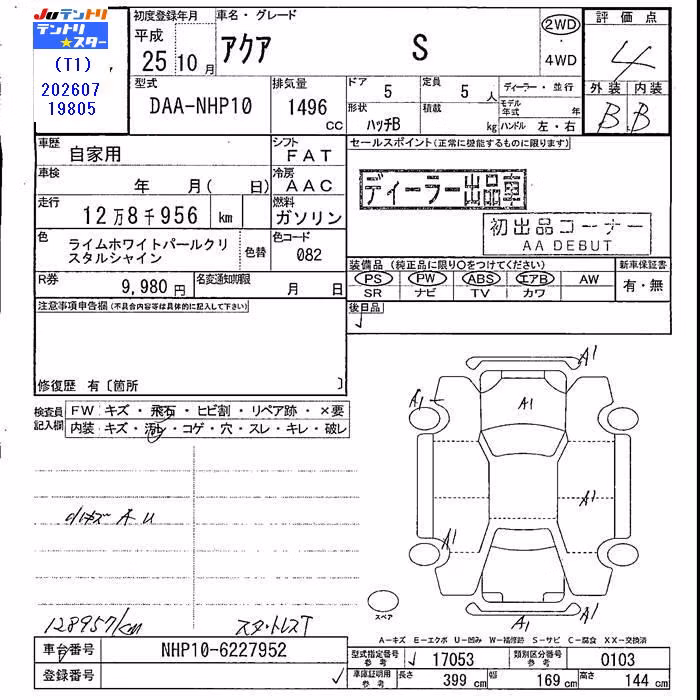 Juテントリ
テントリ
★スター
(T1)
202607
19805
初度登録年月
平成
25年10月
車名・グレード
アクア S
2WD
・
4WD
評価点
4
外装 内装
B B
型式
DAA-NHP10
排気量
1496
cc
ドア
5
定員
5人
形状
ハッチB
積載
kg
ディーラー・並行
モデル年式 年
ハンドル 左・右
車歴
自家用
シフト
FAT
車検
年 月( 日)
冷房
AAC
走行
12万8千956 km
燃料
ガソリン
色
ライムホワイトパールクリスタルシャイン
色替
色コード
082
R券
9,980円
名変通知期限
月 日
セールスポイント(正常に機能するものに限ります)
ディーラー出品車
初出品コーナー
AA DEBUT
装備品(純正品に限り○をつけてください)
PS PW ABS エアB AW
SR ナビ TV カワ
新車保証書
有・無
後日品
注意事項申告欄(不具合内容等は具体的に記入して下さい)
修復歴 有〔箇所 〕
検査員
記入欄
FW キズ・飛石・ヒビ割・リペア跡・×要
内装 キズ・汚レ・コゲ・穴・スレ・キレ・破レ
A U
128957/km
スタットレスT
A1
A1
A1
A1
A1
A1
A1
A1
スペア
A-キズ E-エクボ U-凹み W-補修跡 S-サビ C-腐食 XX-交換済
車台番号
NHP10-6227952
登録番号
型式指定番号
参考
17053
類別区分番号
参考
0103
車庫証明用
参考
長さ 399 cm
幅 169 cm
高さ 144 cm